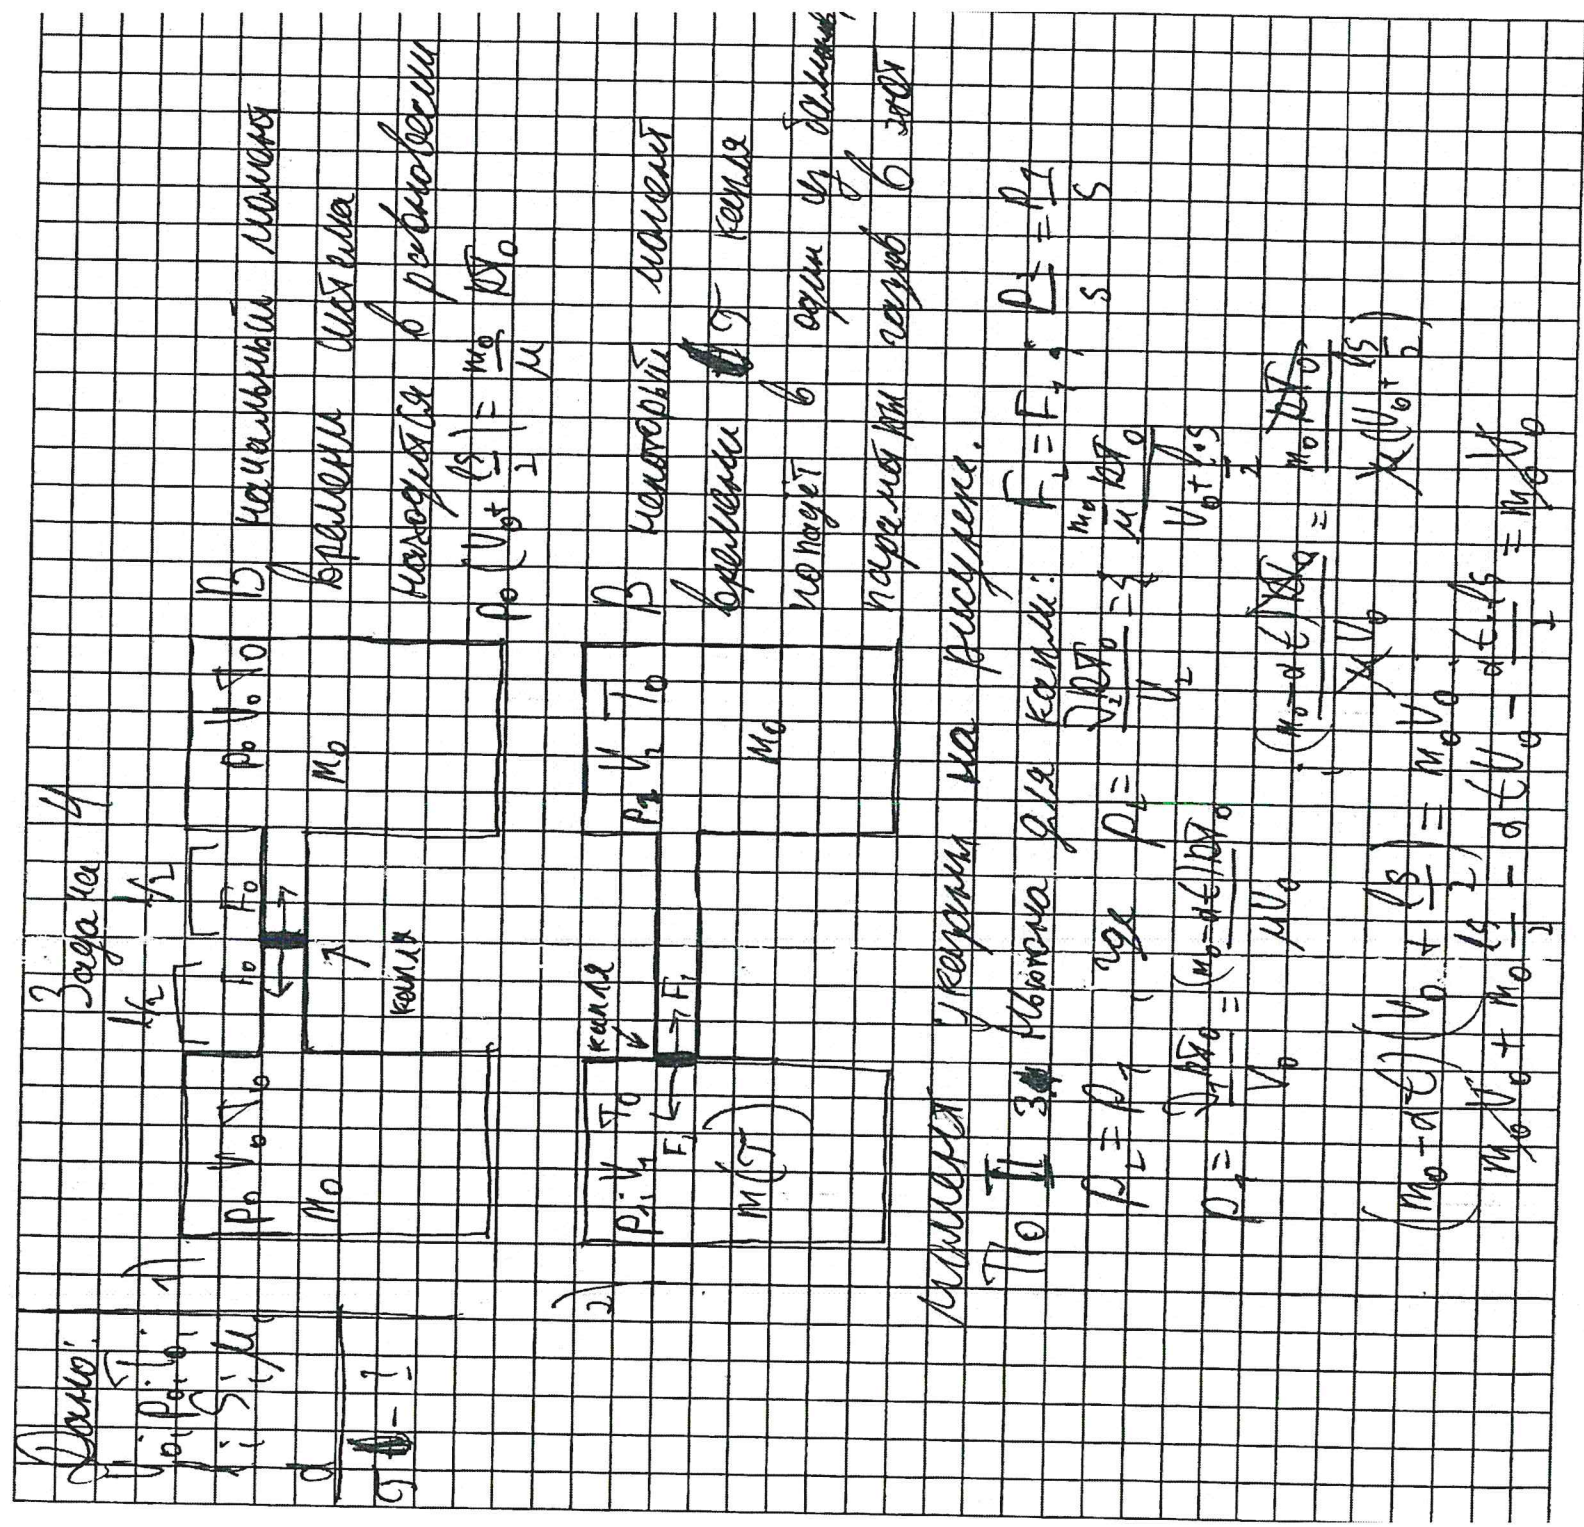 Задача 4
Дано:
V₀; T₀; P₀; l₀;
l; S; μ;
α
τ - ?
1)
l/2 l/2
P₀ V₀ T₀
m₀
F₀ F₀
капля
P₀ V₀ T₀
m₀
В начальный момент
времени система
находится в равновесии
P₀(V₀ + lS/2) = m₀/μ RT₀
2)
P₁; V₁ T₀
m(τ)
капля
F₁ F₁
P₂ V₂ T₀
m₀
В некоторый момент
времени τ капля
попадёт в один из
параметры газов в этот
момент указаны на рисунке.
По II ЗН Ньютона для капли: F₂ = F₁, P₂/S = P₁/S
P₂ = P₁, где P₂ = ν₂RT₀/V₂ = (m₀/μ RT₀)/(V₀ + lS/2)
P₁ = ν₁RT₀/V₀ = (m₀-αt)RT₀/μV₀; (m₀-αt)RT₀/μV₀ = m₀RT₀/μ(V₀ + lS/2)
(m₀-αt)(V₀ + lS/2) = m₀V₀
m₀V₀ + m₀ lS/2 - αtV₀ - αt·lS/2 = m₀V₀